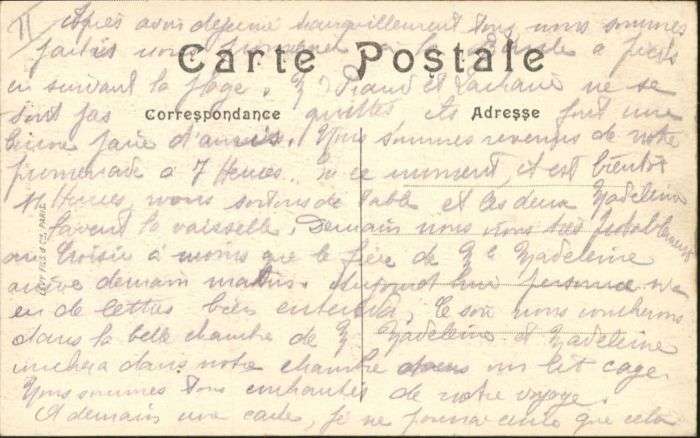 II Après avoir déjeuné tranquillement tous nous sommes
partis nous promener à la à pieds
Carte Postale
en suivant la plage. Mr et ne se
sont pas quittés ils font une
Correspondance
Adresse
bonne paire d'amies. Nous sommes revenus de notre
promenade à 7 Heures. En ce moment, il est bientôt
11 Heures, nous sortons de table et les deux Madeleine
lavent la vaisselle. Demain nous irons très probablement
au Croisic à moins que le frère de Me Madeleine
arrive demain matin. Aujourd'hui personne n'a
eu de lettres bien entendu. Ce soir nous coucherons
dans la belle chambre de Me Madeleine et Madeleine
couchera dans notre chambre dans un lit cage.
Nous sommes tous enchantés de notre voyage.
A demain une carte, je ne que cela
LEVY FILS & Cie, PARIS